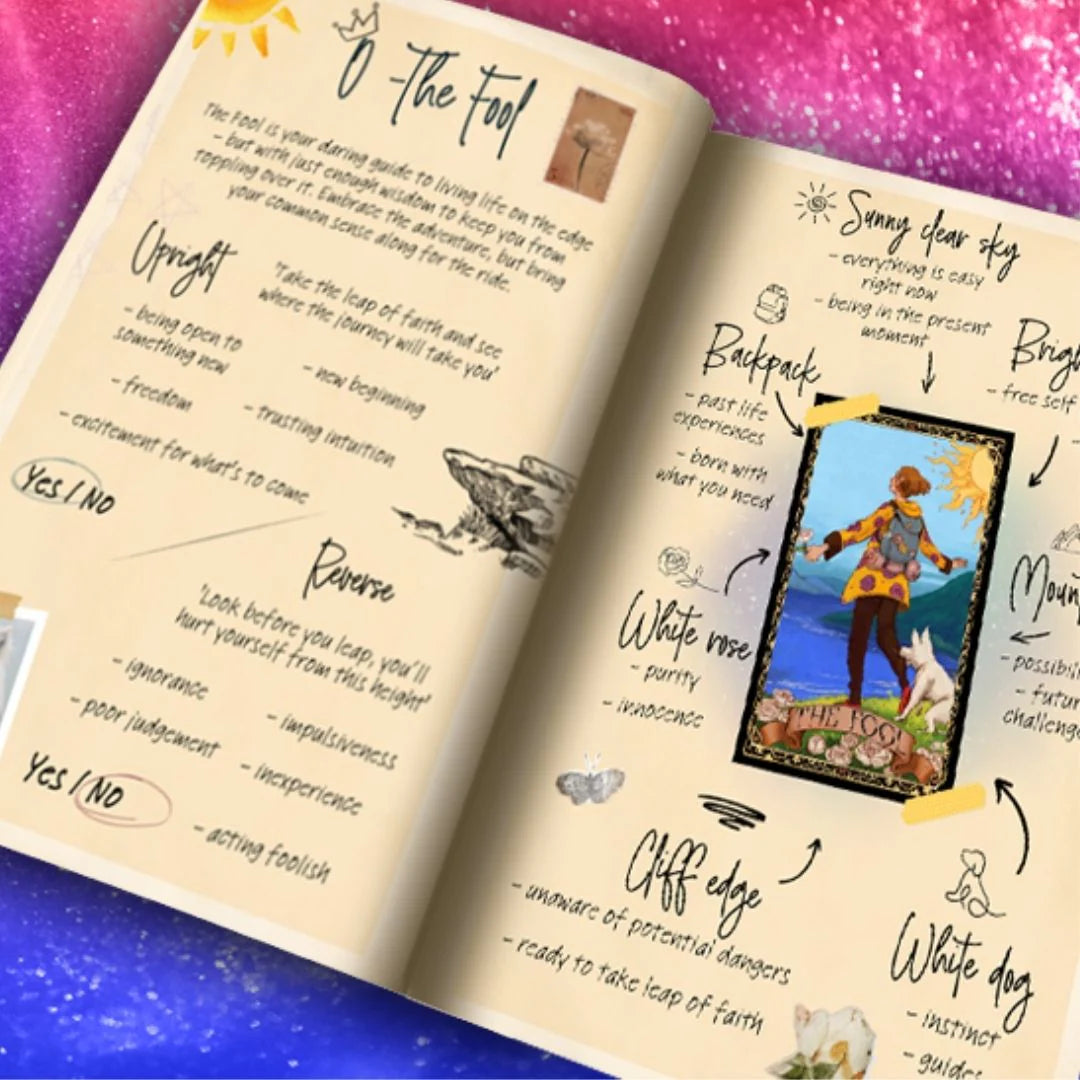 0 - The Fool
The Fool is your daring guide to living life on the edge
- but with just enough wisdom to keep you from
toppling over it. Embrace the adventure, but bring
your common sense along for the ride.
Upright
'Take the leap of faith and see
where the journey will take you'
- being open to
something new
- new beginning
- freedom
- trusting intuition
- excitement for what's to come
Yes / NO
Reverse
'Look before you leap, you'll
hurt yourself from this height'
- ignorance
- impulsiveness
- poor judgement
- inexperience
Yes / NO
- acting foolish
Sunny clear sky
- everything is easy
right now
- being in the present
moment
Backpack
- past life
experiences
- born with
what you need
- free self
White rose
- purity
- innocence
THE FOOL
- future
Cliff edge
- unaware of potential dangers
- ready to take leap of faith
White dog
- instinct